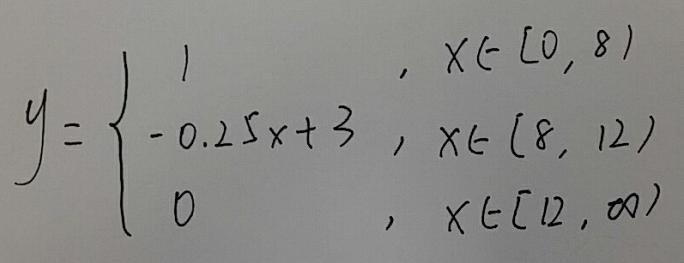 1 , x∈[0, 8)
y= { -0.25x+3 , x∈[8, 12)
0 , x∈[12, ∞)